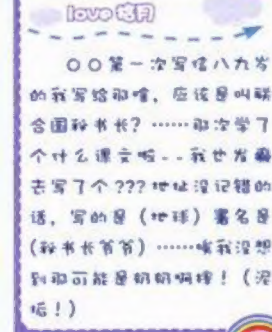 love 皓月
○○第一次写信八九岁
的我写给那啥，应该是叫联
合国秘书长？……那次学了
个什么课文啦--我也发癫
去写了个???地址没记错的
话，写的是（地球）署名是
（秘书长爷爷）……唉我没想
到那可能是奶奶啊摔！（泥
垢！）